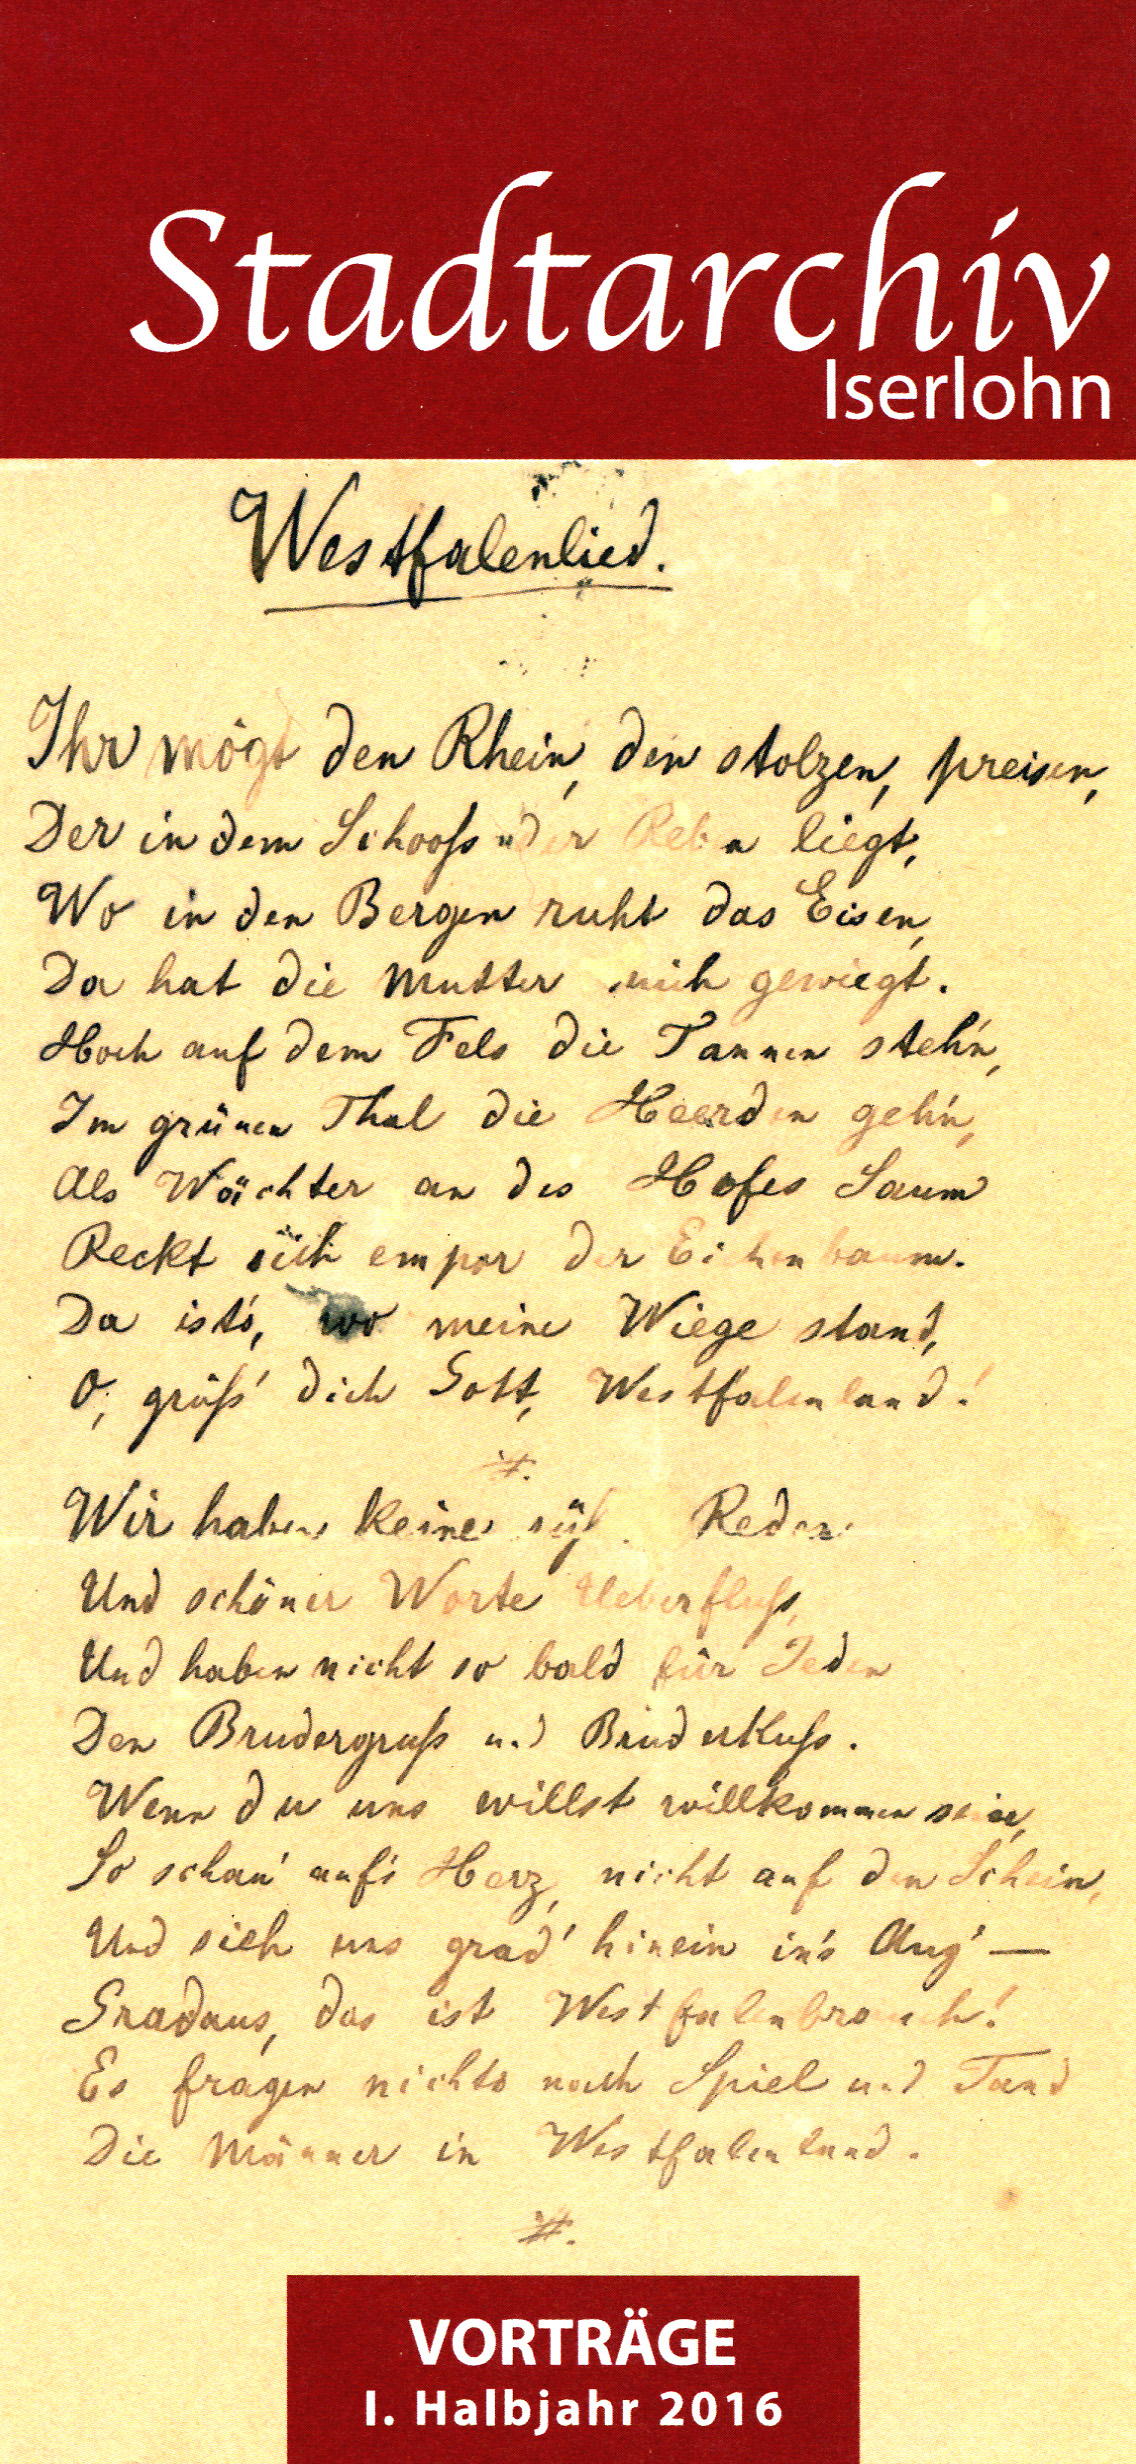 Stadtarchiv
Iserlohn
Westfalenlied.
Ihr mögt den Rhein, den stolzen, preisen,
Der in dem Schooß der Reben liegt,
Wo in den Bergen ruht das Eisen,
Da hat die Mutter mich gewiegt.
Hoch auf dem Fels die Tannen steh'n,
Im grünen Thal die Heerden geh'n,
Als Wächter an des Hofes Saum
Reckt sich empor der Eichenbaum.
Da ist's, wo meine Wiege stand,
O, grüß' dich Gott, Westfalenland!
#.
Wir haben keine süß. Reden
Und schöner Worte Ueberfluß,
Und haben nicht so bald für Jeden
Den Brudergruß und Bruderkuß.
Wenn du uns willst willkommen sein,
So schau' auf's Herz, nicht auf den Schein,
Und sieh uns grad' hinein in's Aug' —
Gradaus, das ist Westfalenbrauch!
Es fragen nichts nach Spiel und Tand
Die Männer in Westfalenland.
#.
VORTRÄGE
I. Halbjahr 2016